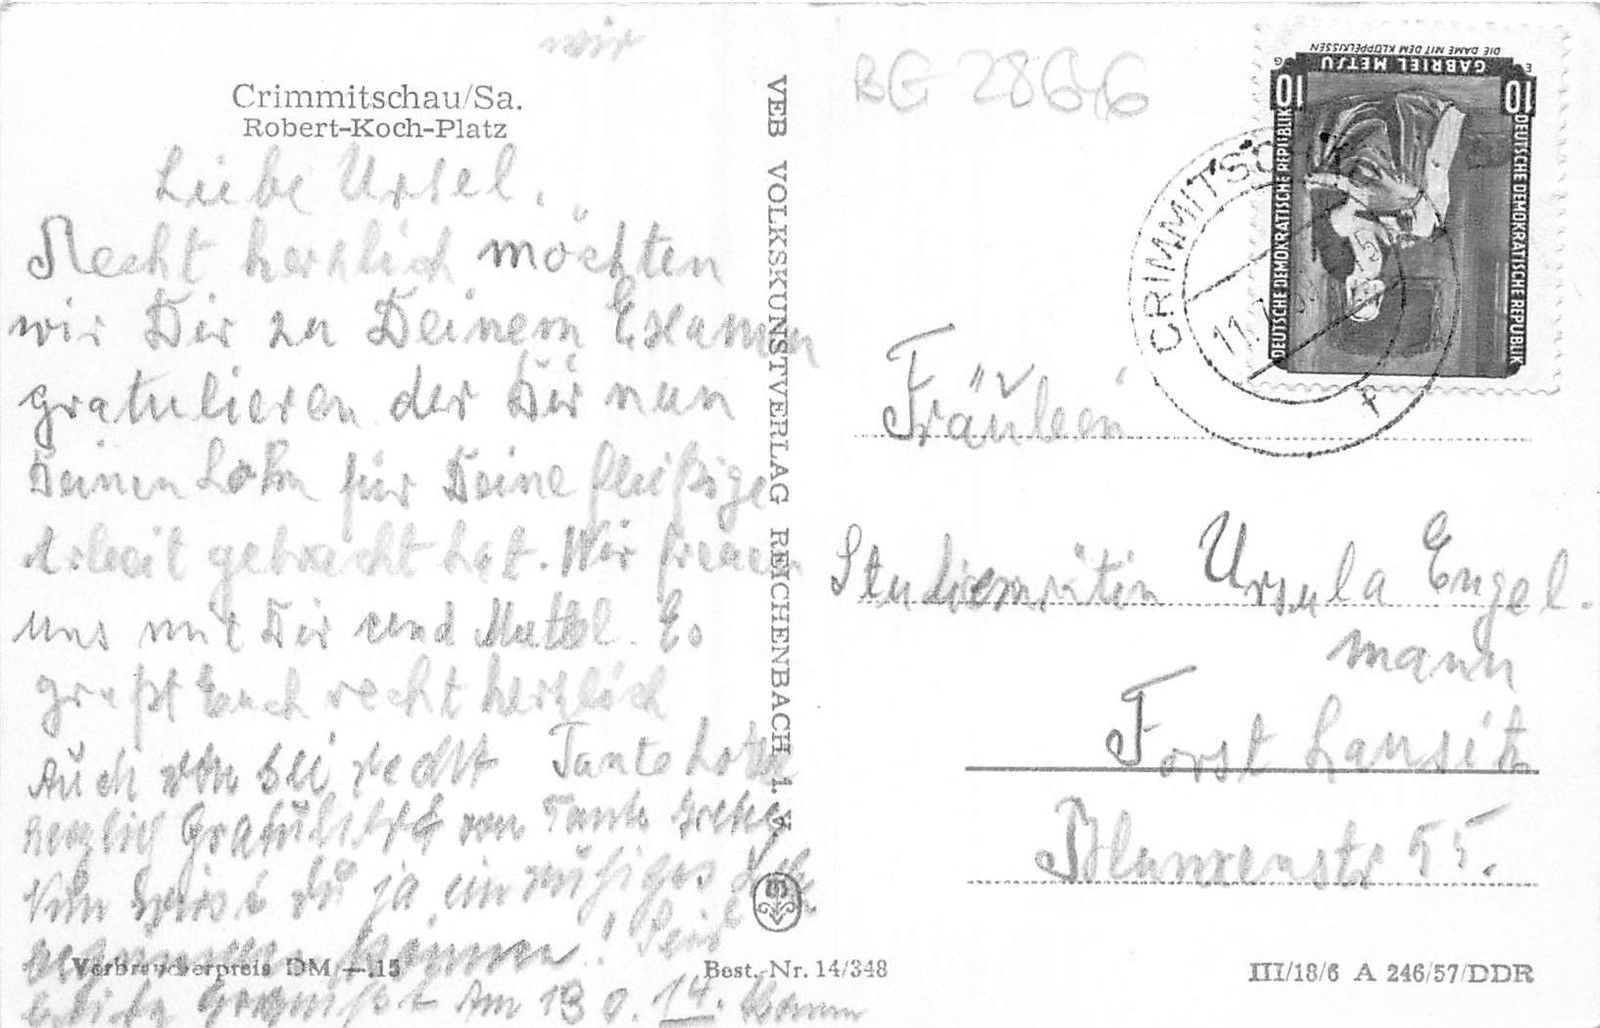 wir
Crimmitschau/Sa.
Robert-Koch-Platz
Liebe Ursel,
Recht herzlich möchten
wir Dir zu Deinem Examen
gratulieren der Dir nun
Deinen Lohn für Deine fleißige
Arbeit gebracht hat. Wir freuen
uns mit Dir und Muttel. Es
grüßt Euch recht herzlich
Tante Lotte
Auch von mir recht
herzlich von Tante Grete
Nun wirst Dü ja ein rühiges
können! Seid
gegrüßt Am 13 o. 14. komm
VEB VOLKSKUNSTVERLAG REICHENBACH i. V.
Verbraucherpreis DM —.15
Best.-Nr. 14/348
III/18/6 A 246/57/DDR
BG 286/6
DIE DAME MIT DEM KLÖPPELKISSEN
GABRIEL METSU
10
10
DEUTSCHE DEMOKRATISCHE REPUBLIK
DEUTSCHE DEMOKRATISCHE REPUBLIK
CRIMMITSCHAU
Fräulein
Studienrätin Ursula Engel-
mann
Forst Lausitz
Blumenstr 55.